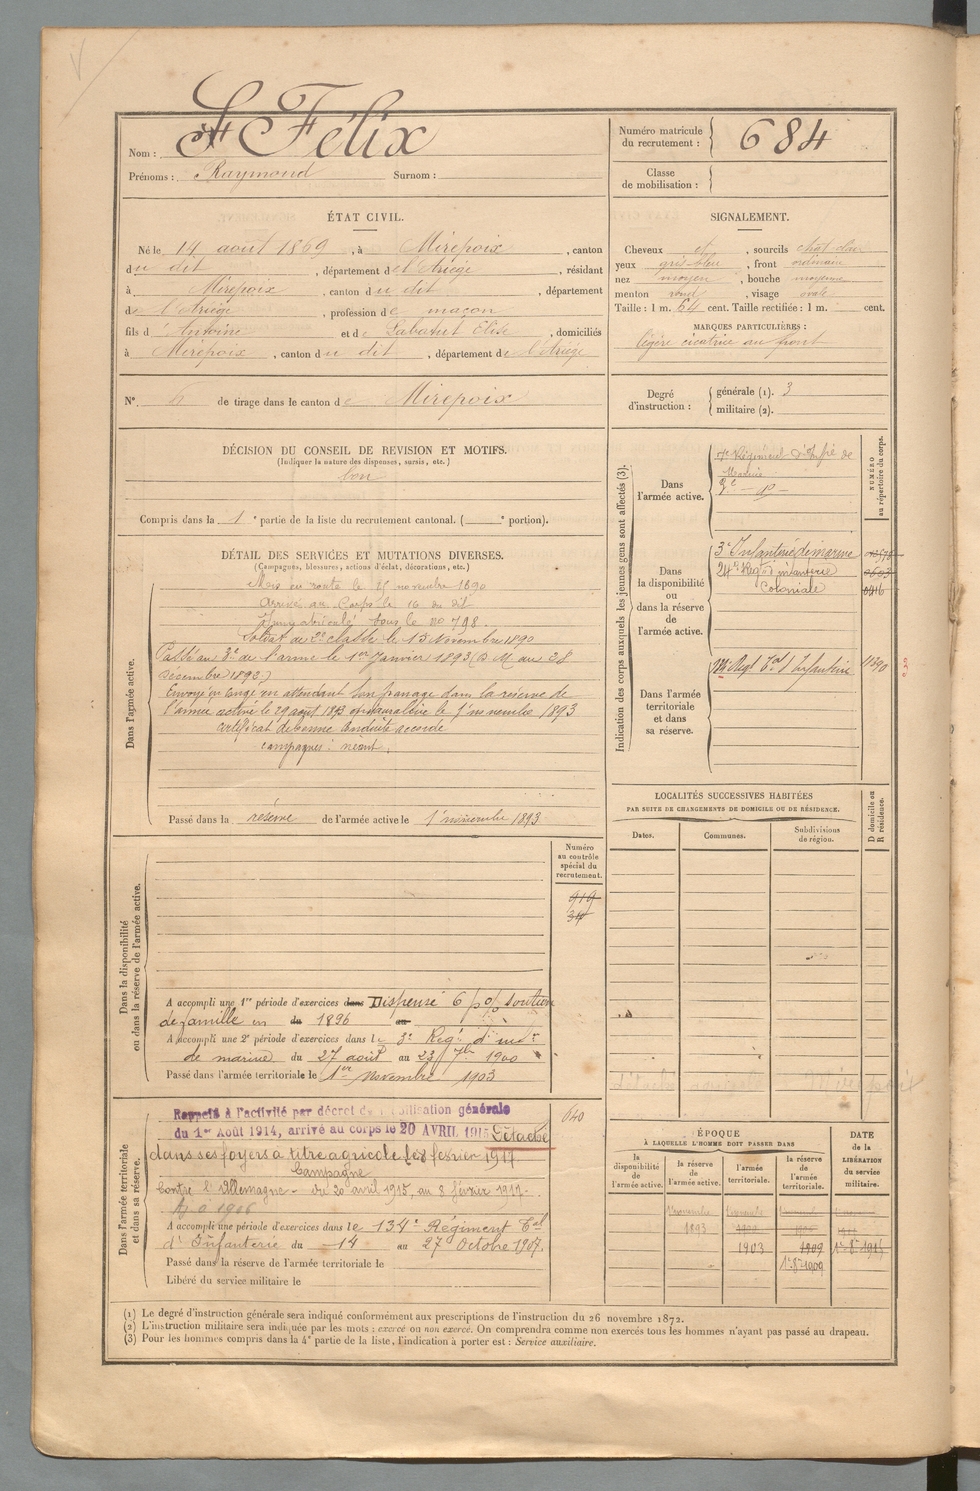 Nom : St Félix
Prénoms : Raymond Surnom :
Numéro matricule du recrutement : 684
Classe de mobilisation :
ÉTAT CIVIL.
Né le 14 août 1869, à Mirepoix, canton
du dit, département de l'Ariège, résidant
à Mirepoix, canton du dit, département
de l'Ariège, profession de maçon
fils d'Antoine et de Sabatut Elise, domiciliés
à Mirepoix, canton du dit, département de l'Ariège
N° de tirage dans le canton de Mirepoix
SIGNALEMENT.
Cheveux et, sourcils chat clair
yeux gris-bleu, front ordinaire
nez moyen, bouche moyenne
menton rond, visage ovale
Taille : 1 m. 64 cent. Taille rectifiée : 1 m. cent.
MARQUES PARTICULIÈRES :
légère cicatrice au front
Degré d'instruction : générale (1). 3
militaire (2).
DÉCISION DU CONSEIL DE REVISION ET MOTIFS.
(Indiquer la nature des dispenses, sursis, etc.)
bon
Compris dans la 1e partie de la liste du recrutement cantonal. ( e portion).
DÉTAIL DES SERVICES ET MUTATIONS DIVERSES.
(Campagnes, blessures, actions d'éclat, décorations, etc.)
Dans l'armée active.
Mis en route le 15 novembre 1890
Arrivé au Corps le 16 du dit
Immatriculé sous le no 798.
Soldat de 2e classe le 15 Novembre 1890
Passé au 3e de l'arme le 1er Janvier 1893 (D. M. du 28
décembre 1892.)
Envoyé en congé en attendant son passage dans la réserve de
l'armée active le 29 août 1893
1er novembre 1893
certificat de bonne conduite accordé
campagnes : néant.
Passé dans la réserve de l'armée active le 1 novembre 1893
Indication des corps auxquels les jeunes gens sont affectés (3).
NUMÉRO au répertoire du corps.
Dans l'armée active.
7e Régiment d'Infie de
Marine
3e — do —
Dans la disponibilité ou dans la réserve de l'armée active.
3e Infanterie de marine
24e Regt d'infanterie
Coloniale
Dans l'armée territoriale et dans sa réserve.
134 Regt Tal d'Infanterie
LOCALITÉS SUCCESSIVES HABITÉES
PAR SUITE DE CHANGEMENTS DE DOMICILE OU DE RÉSIDENCE.
Dates. Communes. Subdivisions de région.
D domicile ou R résidence.
Dans la disponibilité ou dans la réserve de l'armée active.
Numéro au contrôle spécial du recrutement.
919
34
A accompli une 1re période d'exercices dans Dispensé 6 p. o/o soutien
de famille en du 1896 au
A accompli une 2e période d'exercices dans le 3e Reg. d'
de marine du 27 août au 23 7bre 1900
Passé dans l'armée territoriale le 1er Novembre 1903
Dans l'armée territoriale et dans sa réserve.
640
Rappelé à l'activité par décret de mobilisation générale
du 1er Août 1914, arrivé au corps le 20 AVRIL 1915 Détaché
dans ses foyers à titre agricole le 8 février 1917.
Campagne
Contre l'Allemagne - du 20 avril 1915, au 8 février 1917.
1906
A accompli une période d'exercices dans le 134e Régiment Tal
d'Infanterie du 14 au 27 Octobre 1907.
Passé dans la réserve de l'armée territoriale le
Libéré du service militaire le
ÉPOQUE
À LAQUELLE L'HOMME DOIT PASSER DANS
DATE de la LIBÉRATION du service militaire.
la disponibilité de l'armée active.
la réserve de l'armée active.
l'armée territoriale.
la réserve de l'armée territoriale.
1893
1903 1909
1er 8bre 1909
(1) Le degré d'instruction générale sera indiqué conformément aux prescriptions de l'instruction du 26 novembre 1872.
(2) L'instruction militaire sera indiquée par les mots : exercé ou non exercé. On comprendra comme non exercés tous les hommes n'ayant pas passé au drapeau.
(3) Pour les hommes compris dans la 4e partie de la liste, l'indication à porter est : Service auxiliaire.